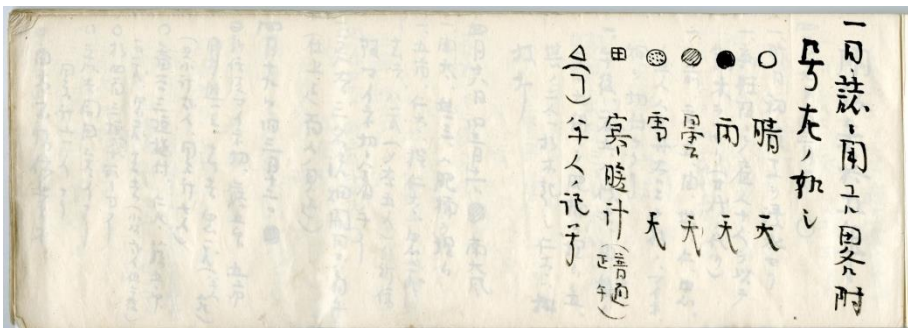 一日誌ニ用ユル畧附
号左ノ如シ
○ 晴天
● 雨天
◍ 曇天
雪天
田 寒暖計(普通正午)
△( )ハ半人ノ記号